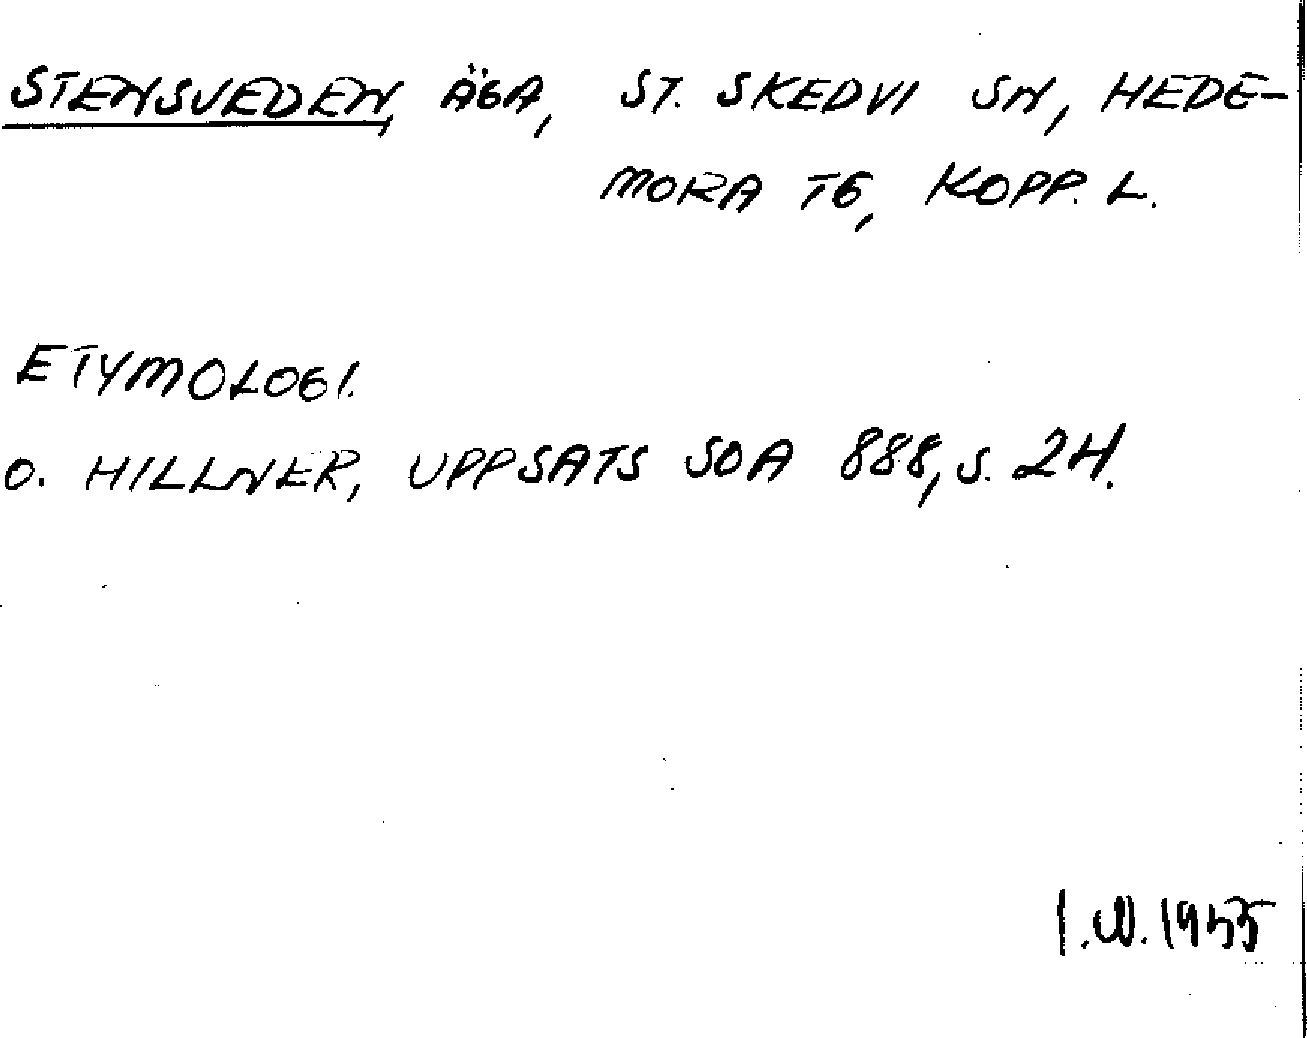 STENSVEDEN, ÄGA, ST. SKEDVI SN, HEDE-
MORA TG, KOPP. L.
ETYMOLOGI.
O. HILLNER, UPPSATS SOA 888, S. 24.
I.W. 1955